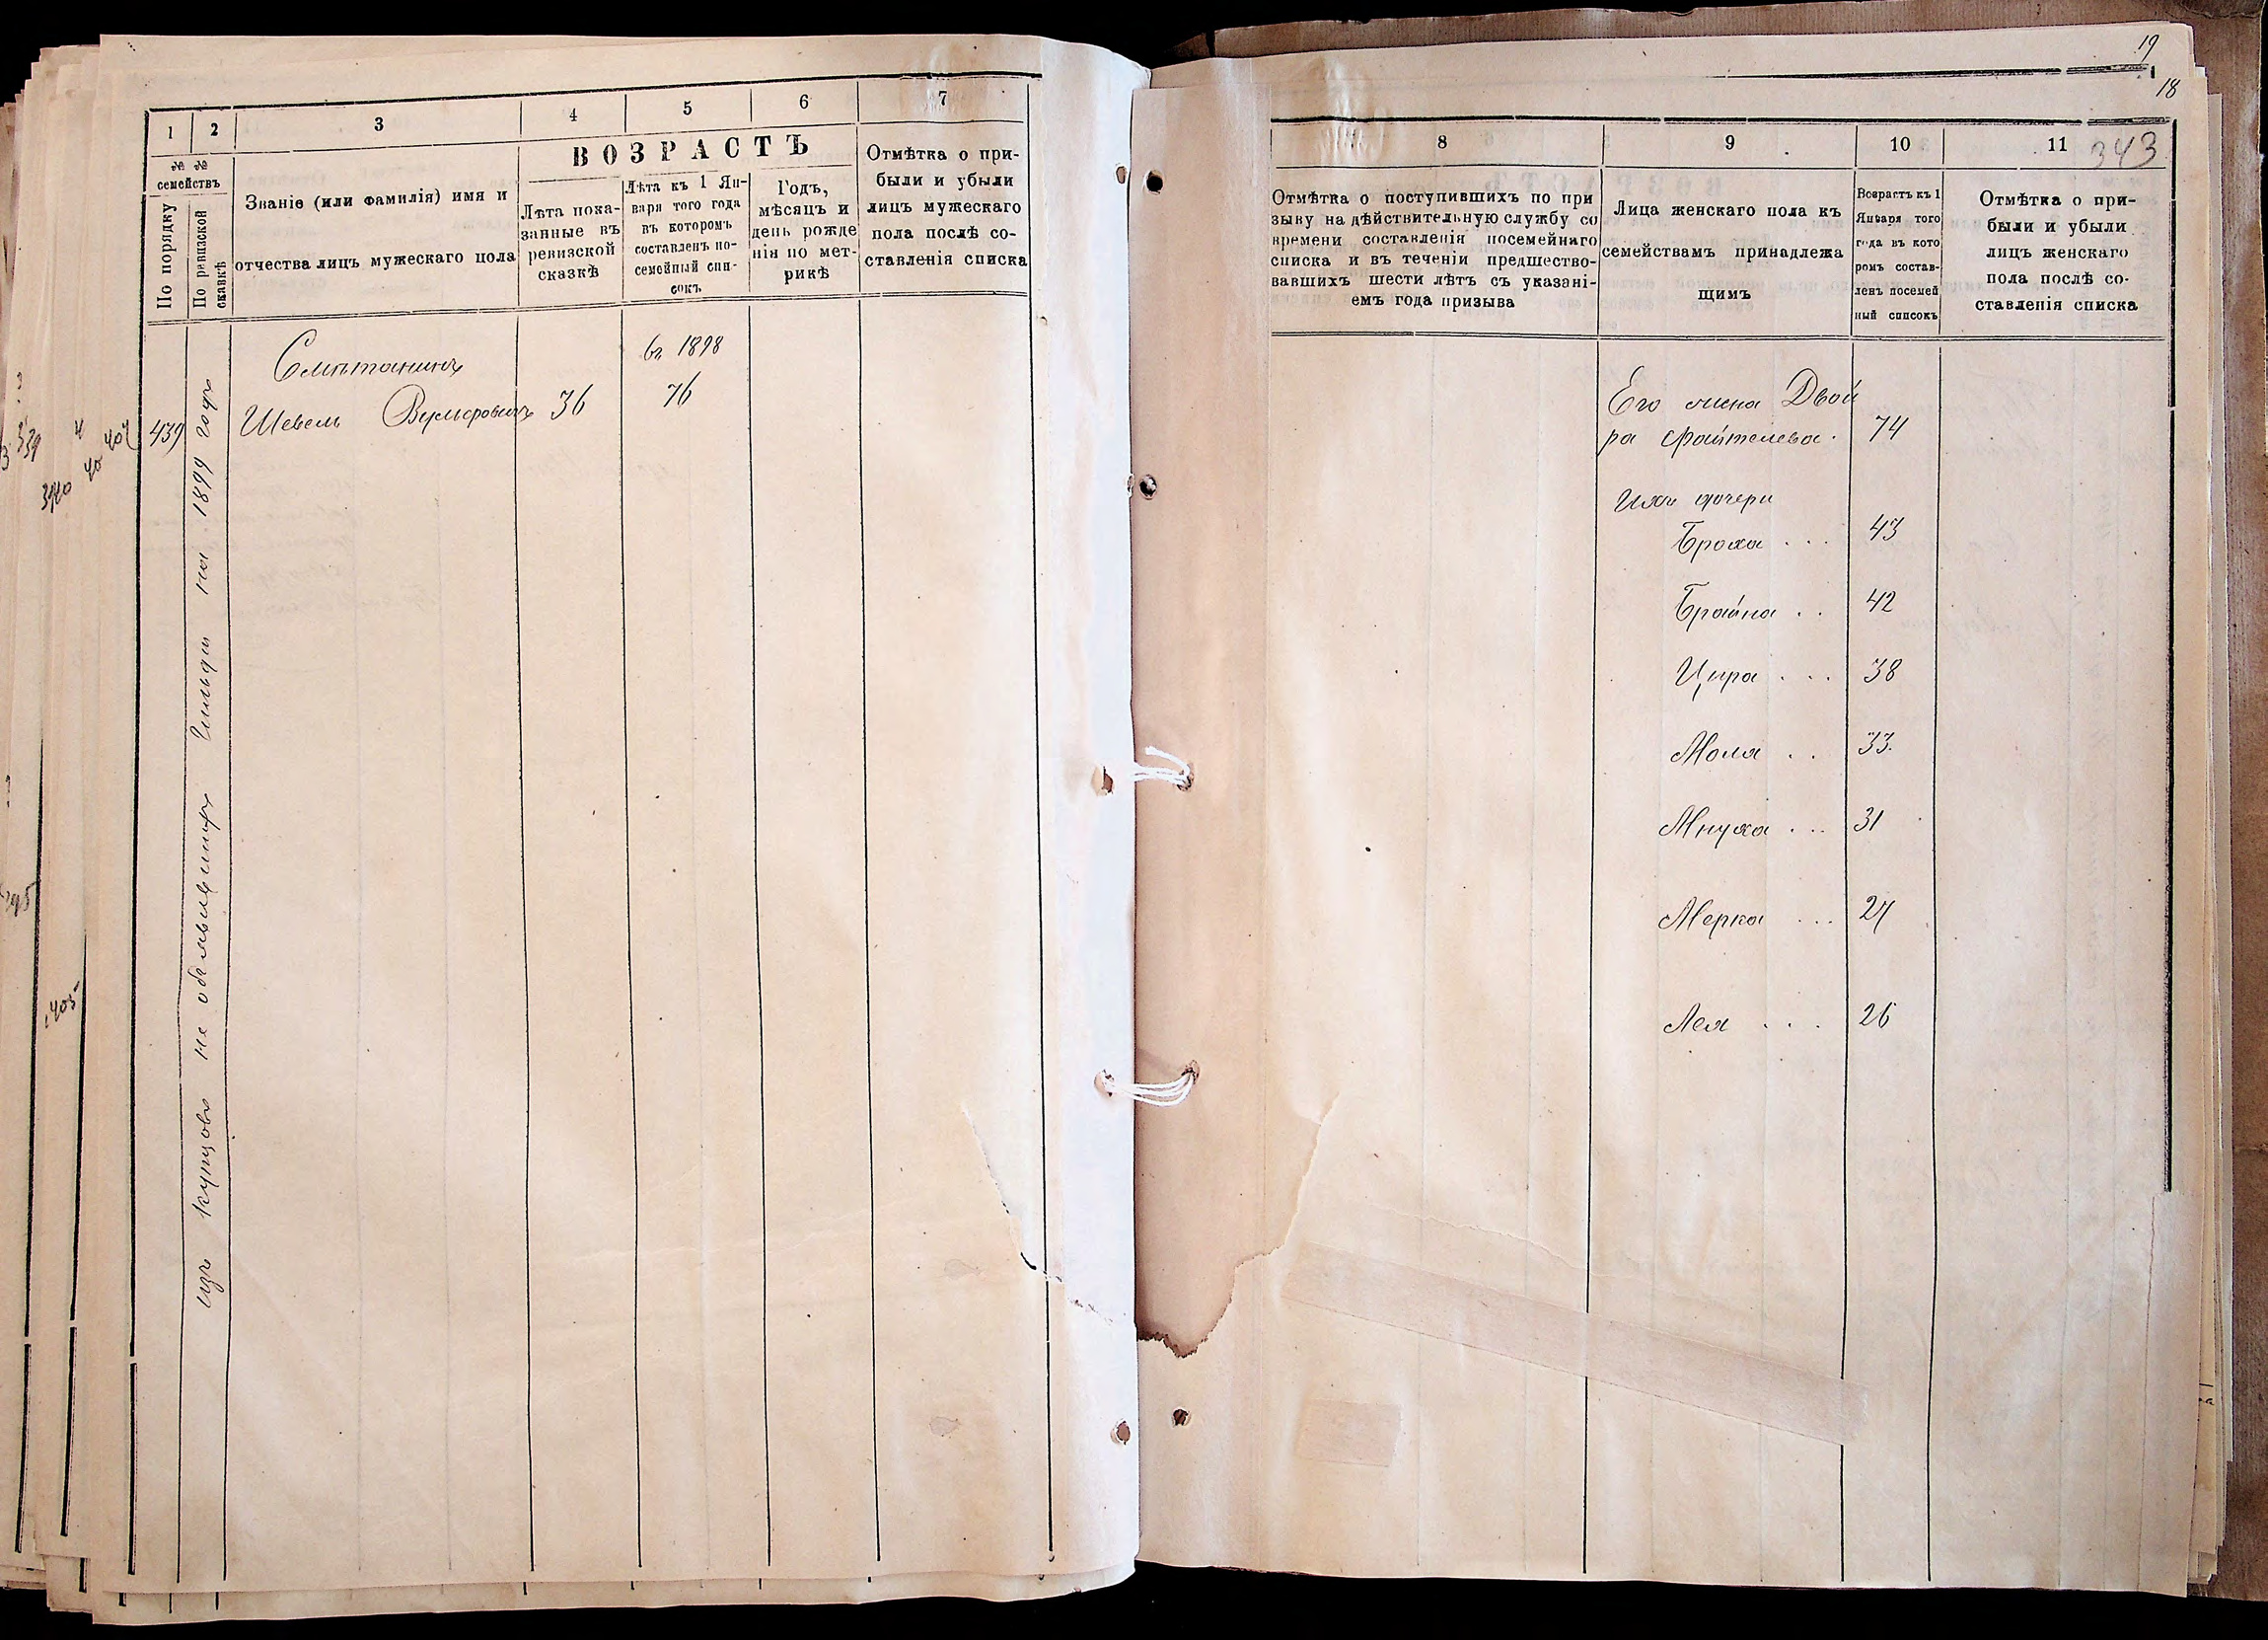 1
2
3
4
5
6
7
№ №
семействъ
По порядку
По ревизской
сказкѣ
Званіе (или фамилія) имя и
отчества лицъ мужескаго пола
ВОЗРАСТЪ
Лѣта пока-
занные въ
ревизской
сказкѣ
Лѣта къ 1 Ян-
варя того года
въ которомъ
составленъ по-
семейный спи-
сокъ
Годъ,
мѣсяцъ и
день рожде
нія по мет-
рикѣ
Отмѣтка о при-
были и убыли
лицъ мужескаго
пола послѣ со-
ставленія списка
въ 1898
Сметанинъ
439
Шевель Вульфовичъ 36 76
изъ купцовъ не объявившихъ гильди на 1899 годъ
407
40
3940
339
405
19
18
8
9
10
11
343
Отмѣтка о поступившихъ по при
зыву на дѣйствительную службу со
времени составленія посемейнаго
списка и въ теченіи предшество-
вавшихъ шести лѣтъ съ указані-
емъ года призыва
Лица женскаго пола къ
семействамъ принадлежа
щимъ
Возрастъ къ 1
Января того
года въ кото
ромъ состав-
ленъ посемей
ный списокъ
Отмѣтка о при-
были и убыли
лицъ женскаго
пола послѣ со-
ставленія списка
Его жена Двой
ра Файтелева. 74
Ихъ дочери
Броха . . . 43
Брайна . . 42
Цира . . . 38
Моля . . 33.
Мнуха . . . 31
Мерка . . . 27
Лея . . . 26